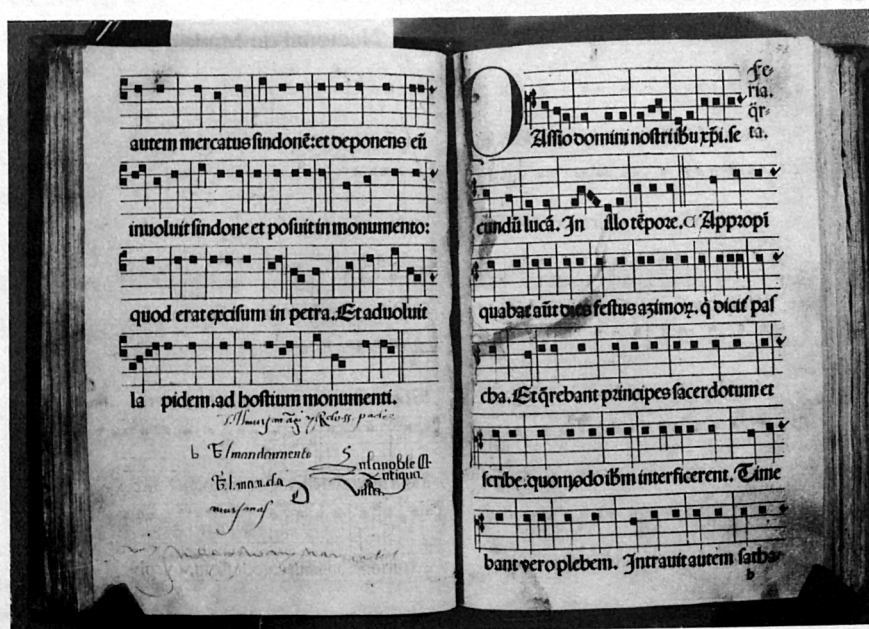 autem mercatus sindonē: et deponens eū
inuoluit sindone et posuit in monumento:
quod erat excisum in petra. Et aduoluit
la pidem. ad hostium monumenti.
b El mandamiento
El. manda
Fe-
ria.
q̄r-
ta.
PAssio domini nostri iħu xp̄i. se
cundū lucā. In illo tēpore. ¶ Appropī
quabat aūt dies festus azimoꝝ. q̄ dicit᷑ pas
cha. Et q̄rebant principes sacerdotum et
scribe. quomodo iħm interficerent. Time
bant vero plebem. Intrauit autem satha-
b